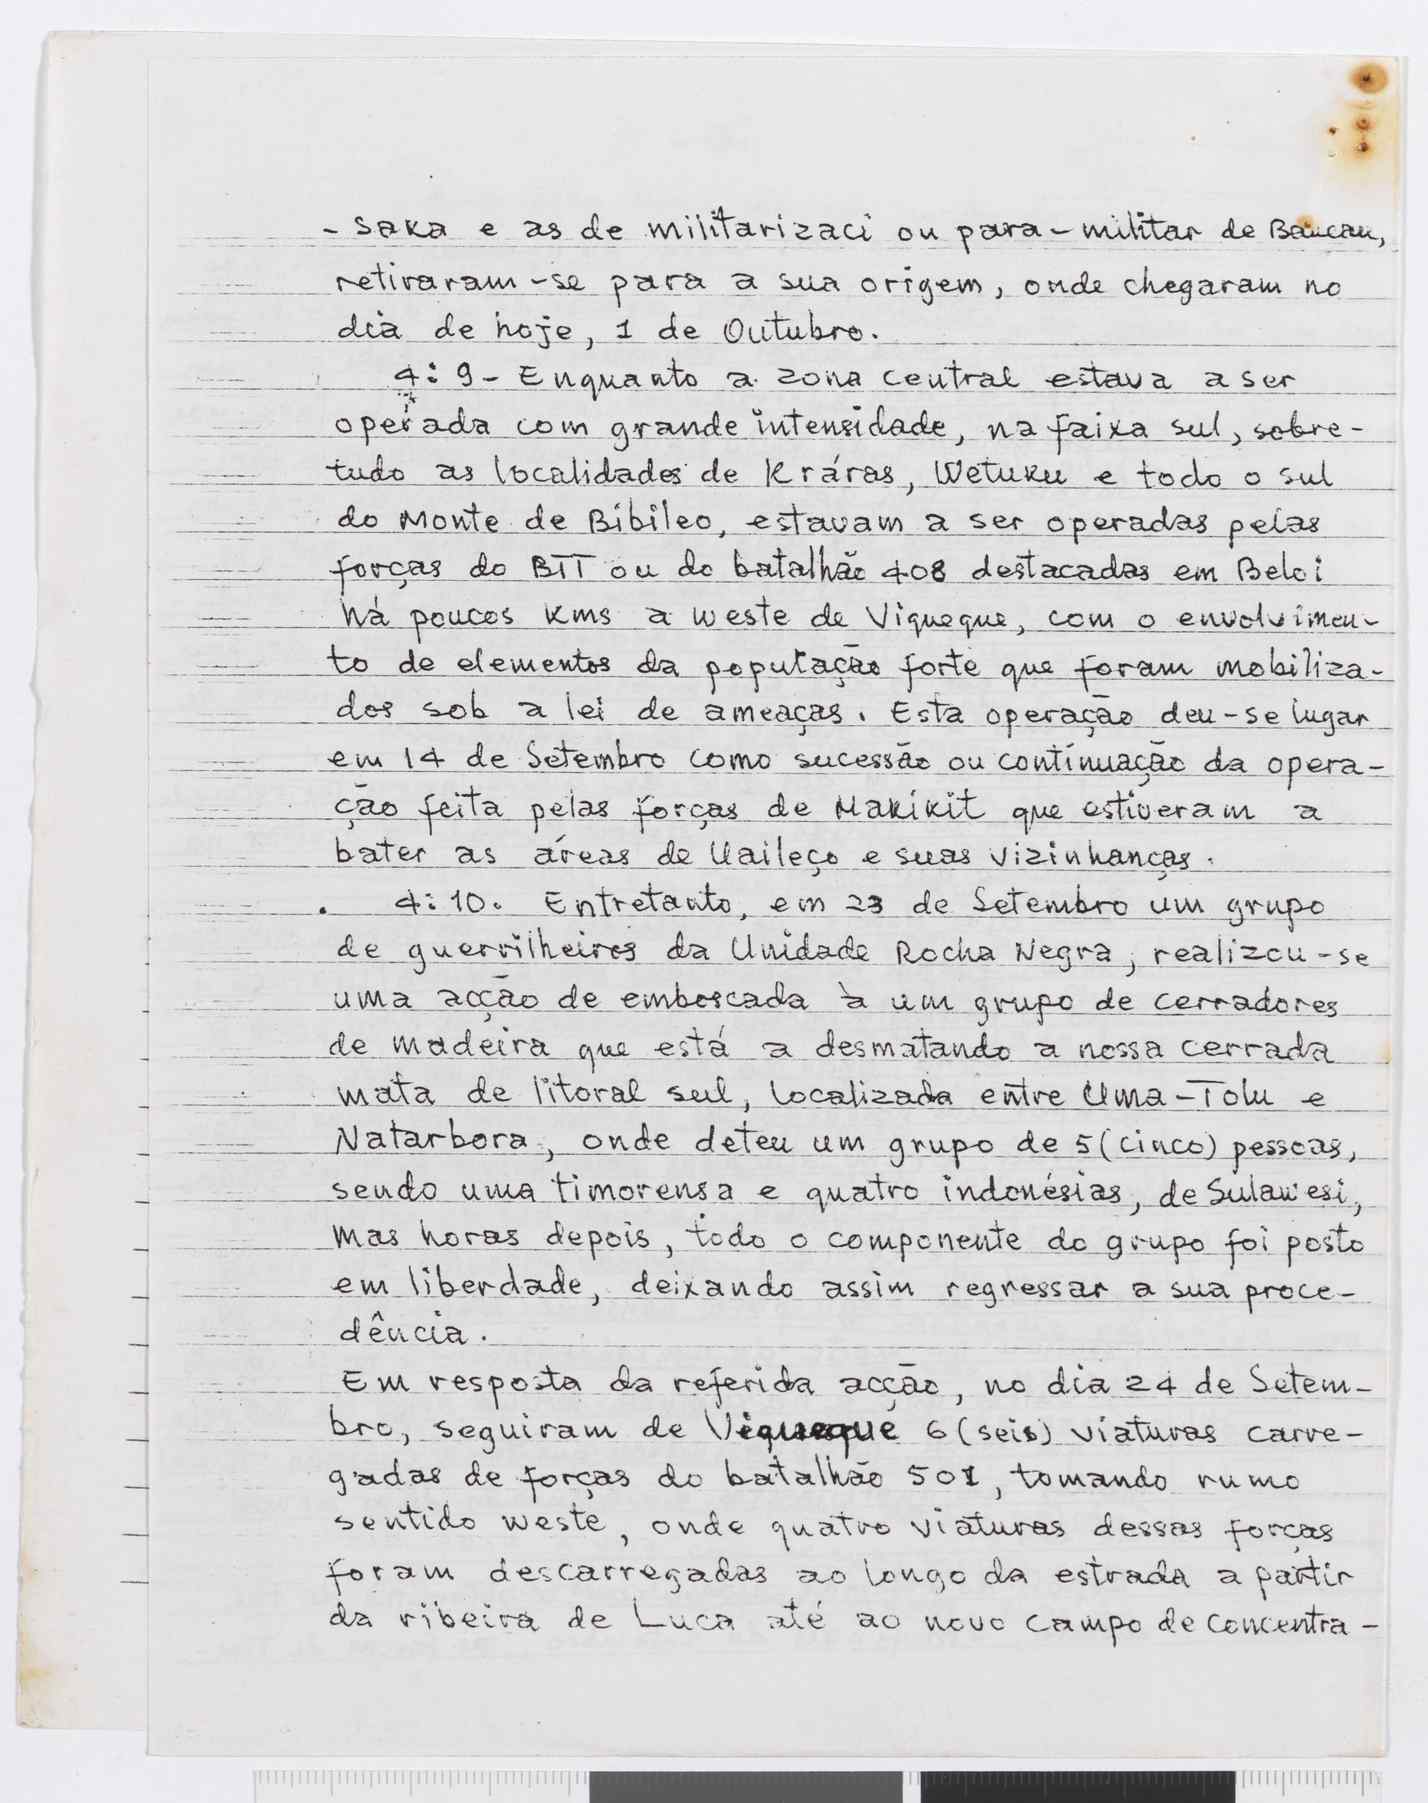 - saka e as de militarizaci ou para-militar de Baucau,
retiraram-se para a sua origem, onde chegaram no
dia de hoje, 1 de Outubro.
4:9- Enquanto a zona central estava a ser
operada com grande intensidade, na faixa sul, sobre-
tudo as localidades de Kráras, Wetuku e todo o sul
do Monte de Bibileo, estavam a ser operadas pelas
forças do BTT ou do batalhão 408 destacadas em Beloi
há poucos Kms a weste de Viqueque, com o envolvimen-
to de elementos da população forte que foram mobiliza-
dos sob a lei de ameaças. Esta operação deu-se lugar
em 14 de Setembro como sucessão ou continuação da opera-
ção feita pelas forças de Makikit que estiveram a
bater as áreas de Uaileço e suas vizinhanças.
. 4:10. Entretanto, em 23 de Setembro um grupo
de guerrilheiros da Unidade Rocha Negra, realizou-se
uma acção de emboscada à um grupo de cerradores
de madeira que está a desmatando a nossa cerrada
mata de litoral sul, localizada entre Uma-Tolu e
Natarbora, onde deteu um grupo de 5 (cinco) pessoas,
sendo uma timorensa e quatro indonésias, de Sulawesi,
mas horas depois, todo o componente do grupo foi posto
em liberdade, deixando assim regressar a sua proce-
dência.
Em resposta da referida acção, no dia 24 de Setem-
bro, seguiram de Viqueque 6 (seis) viaturas carre-
gadas de forças do batalhão 501, tomando rumo
sentido weste, onde quatro viaturas dessas forças
foram descarregadas ao longo da estrada a partir
da ribeira de Luca até ao novo campo de concentra-